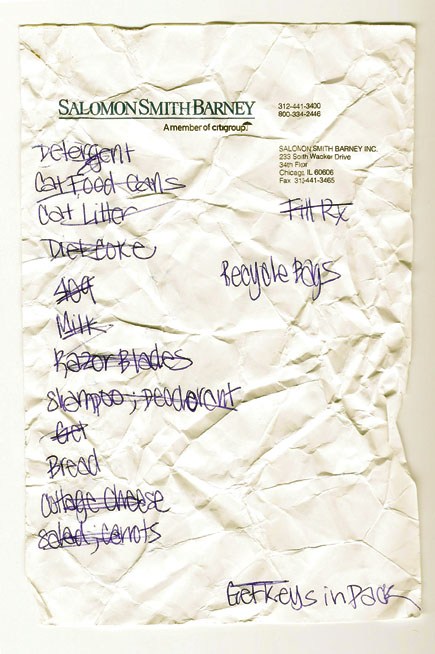 SALOMON SMITH BARNEY
A member of citigroup
312-441-3400
800-334-2446
SALOMON SMITH BARNEY INC.
233 South Wacker Drive
34th Floor
Chicago, IL 60606
Fax 312-441-3465
Detergent
Cat Food cans
Cat Litter
Fill Rx
Diet Coke
Recycle Bags
409
Milk
Razor Blades
Shampoo; Deodorant
Bread
cottage cheese
salad; carrots
Get Keys in Pack